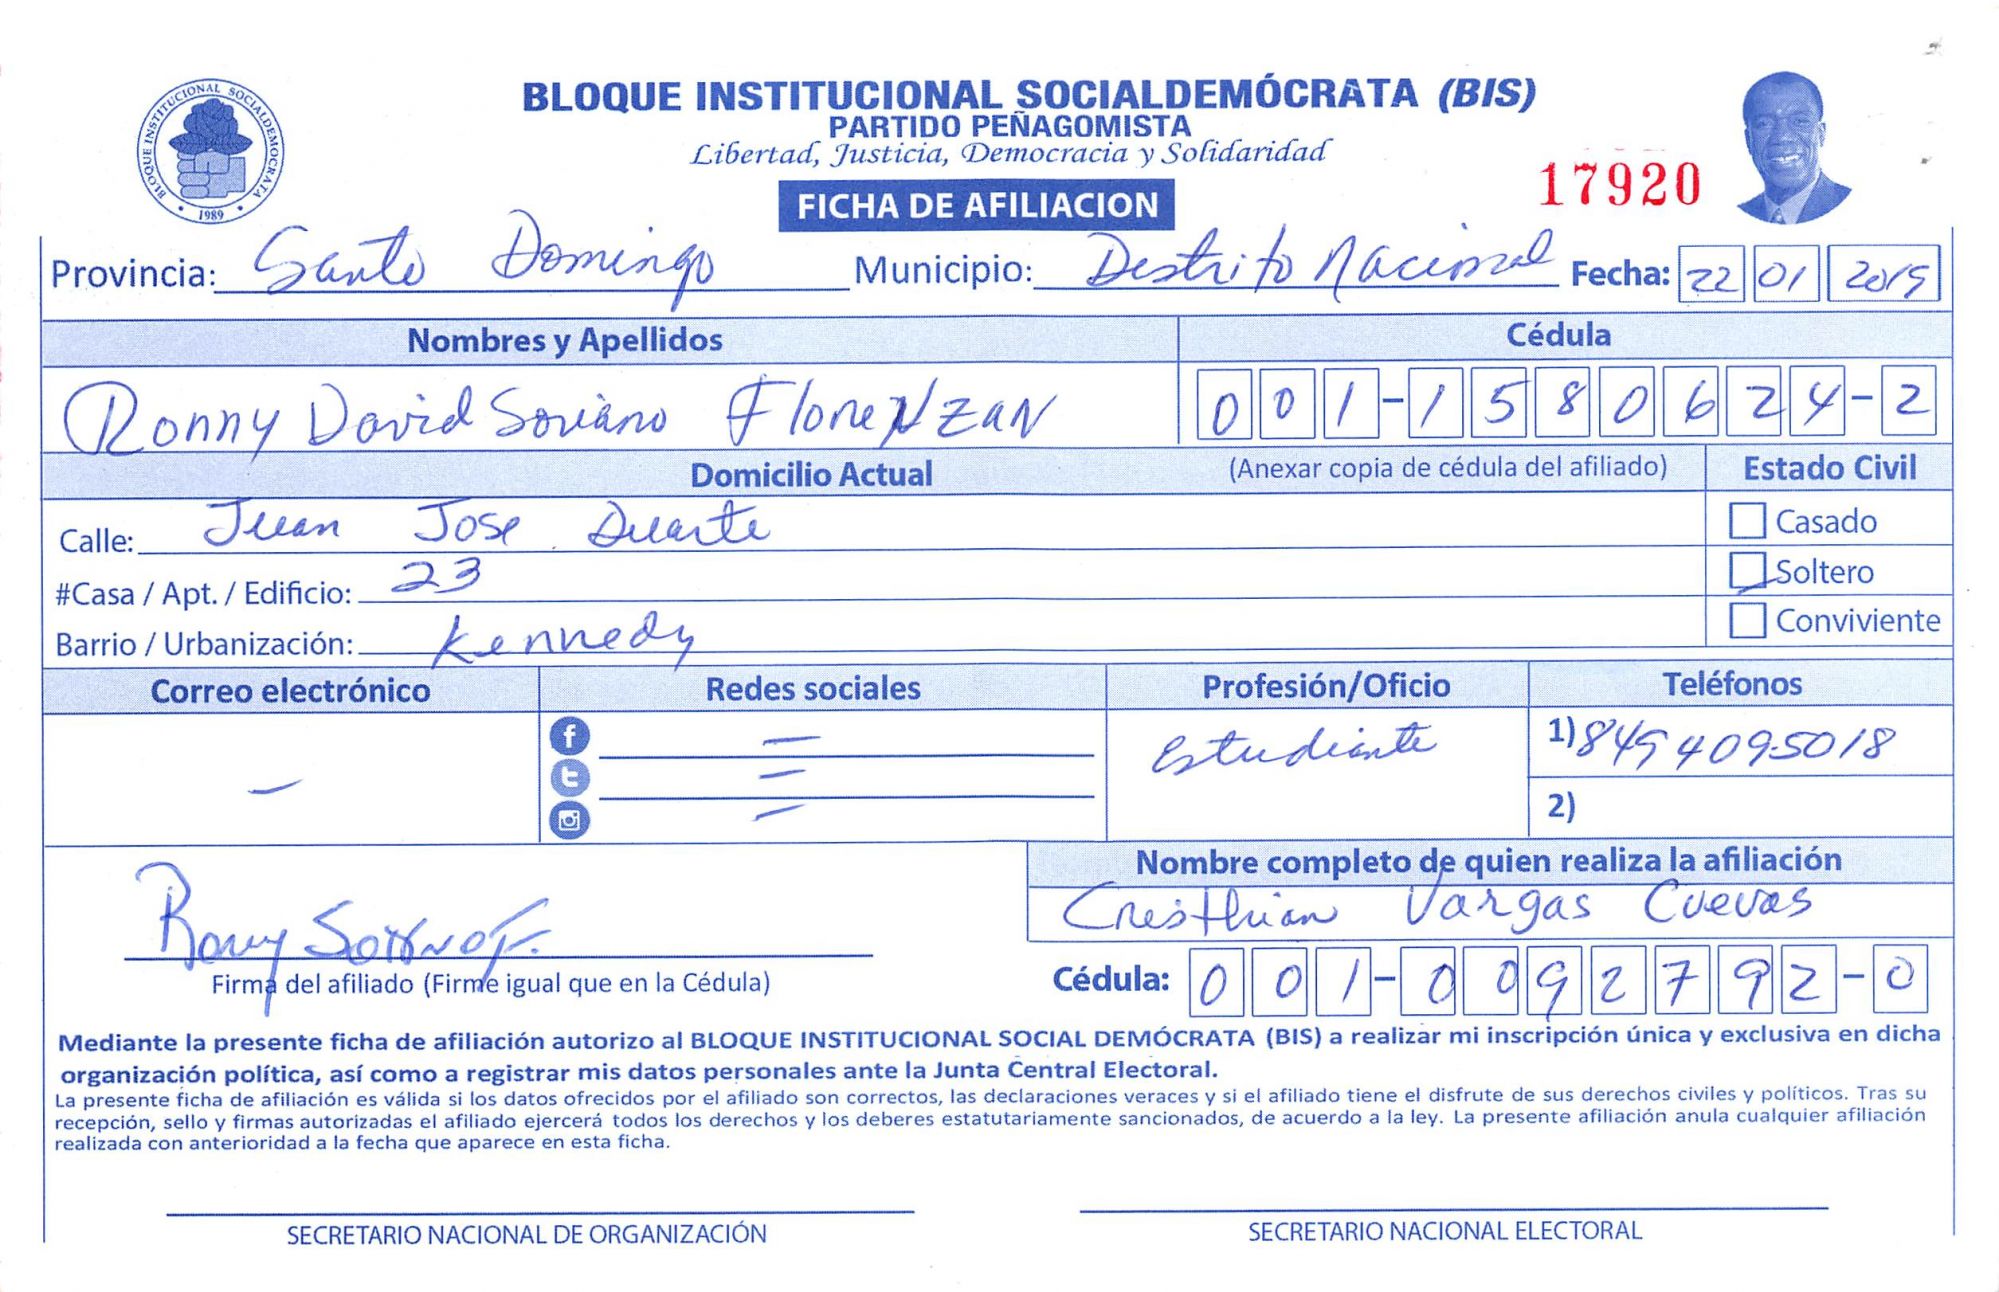 BLOQUE INSTITUCIONAL SOCIALDEMÓCRATA (BIS)
PARTIDO PEÑAGOMISTA
Libertad, Justicia, Democracia y Solidaridad
BLOQUE INSTITUCIONAL SOCIALDEMOCRATA • 1989 •
17920
FICHA DE AFILIACION
Provincia: Santo Domingo Municipio: Distrito Nacional Fecha: 22 01 2019
Nombres y Apellidos Cédula
Ronny David Soriano Florenzan 001-1580624-2
Domicilio Actual (Anexar copia de cédula del afiliado) Estado Civil
Calle: Juan Jose Duarte Casado
#Casa / Apt. / Edificio: 23 Soltero
Barrio / Urbanización: Kennedy Conviviente
Correo electrónico Redes sociales Profesión/Oficio Teléfonos
– – – – Estudiante 1) 849 409-5018
2)
Nombre completo de quien realiza la afiliación
Cristhian Vargas Cuevas
Rony Soriano F.
Firma del afiliado (Firme igual que en la Cédula) Cédula: 001-0092792-0
Mediante la presente ficha de afiliación autorizo al BLOQUE INSTITUCIONAL SOCIAL DEMÓCRATA (BIS) a realizar mi inscripción única y exclusiva en dicha
organización política, así como a registrar mis datos personales ante la Junta Central Electoral.
La presente ficha de afiliación es válida si los datos ofrecidos por el afiliado son correctos, las declaraciones veraces y si el afiliado tiene el disfrute de sus derechos civiles y políticos. Tras su
recepción, sello y firmas autorizadas el afiliado ejercerá todos los derechos y los deberes estatutariamente sancionados, de acuerdo a la ley. La presente afiliación anula cualquier afiliación
realizada con anterioridad a la fecha que aparece en esta ficha.
SECRETARIO NACIONAL DE ORGANIZACIÓN SECRETARIO NACIONAL ELECTORAL